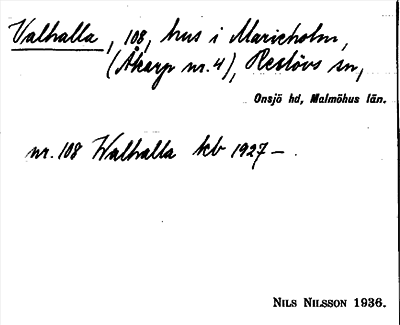 Valhalla, 108, hus i Marieholm,
(Åkarp nr. 4), Reslövs sn,
Onsjö hd, Malmöhus län.
nr. 108 Walhalla kb 1927 –
NILS NILSSON 1936.